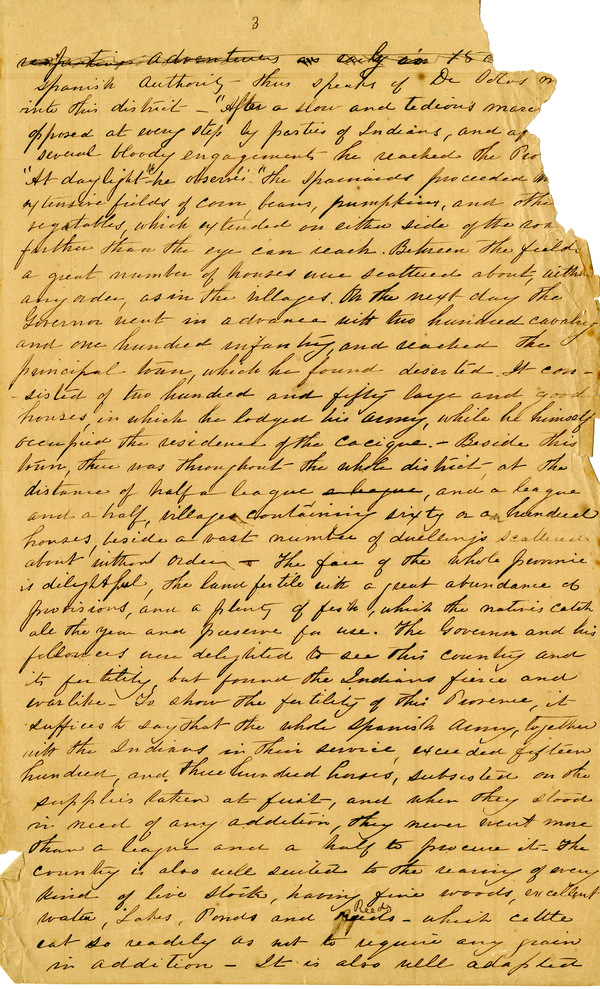 3
adventurers as early in 18
Spanish authority thus speaks of De Sotos m
into this district — "After a slow and tedious marc
opposed at every step by parties of Indians, and af
several bloody engagements he reached the Pro
"At daylight" he observes "the Spaniards proceeded
extensive fields of corn, beans, pumpkins, and othe
vegatables, which extended on either side of the roa
further than the eye can reach. Between the fields
a great number of houses were scattered about, witho
any order, as in the villages. On the next day the
Governor went in advance with two hundred cavalry
and one hundred infantry, and reached the
principal town, which he found deserted. It con-
-sisted of two hundred and fifty large and good
houses in which he lodged his army, while he himself
occupied the residence of the cacique. — Beside this
town, there was throughout the whole district, at the
distance of half a league, a league, and a league
and a half, villages containing sixty or a hundred
houses, beside a vast number of dwellings scattered
about without order — The face of the whole province
is delightful, the land fertile with a great abundance of
provisions, and a plenty of fish, which the natives catch
all the year and preserve for use. The Governor and his
followers were delighted to see this country and
its fertility, but found the Indians fierce and
warlike — To show the fertility of this Provence, it
suffices to say that the whole Spanish Army, together
with the Indians in their service, exceeded fifteen
hundred, and three hundred horses, subsisted on the
supplies taken at first, and when they stood
in need of any addition, they never went more
than a league and a half to procure it — The
country is also well suited to the rearing of every
kind of live stock, having fine woods, excellent
water, Lakes, Ponds and Reeds — which cattle
eat so readily as not to require any grain
in addition — It is also well adapted